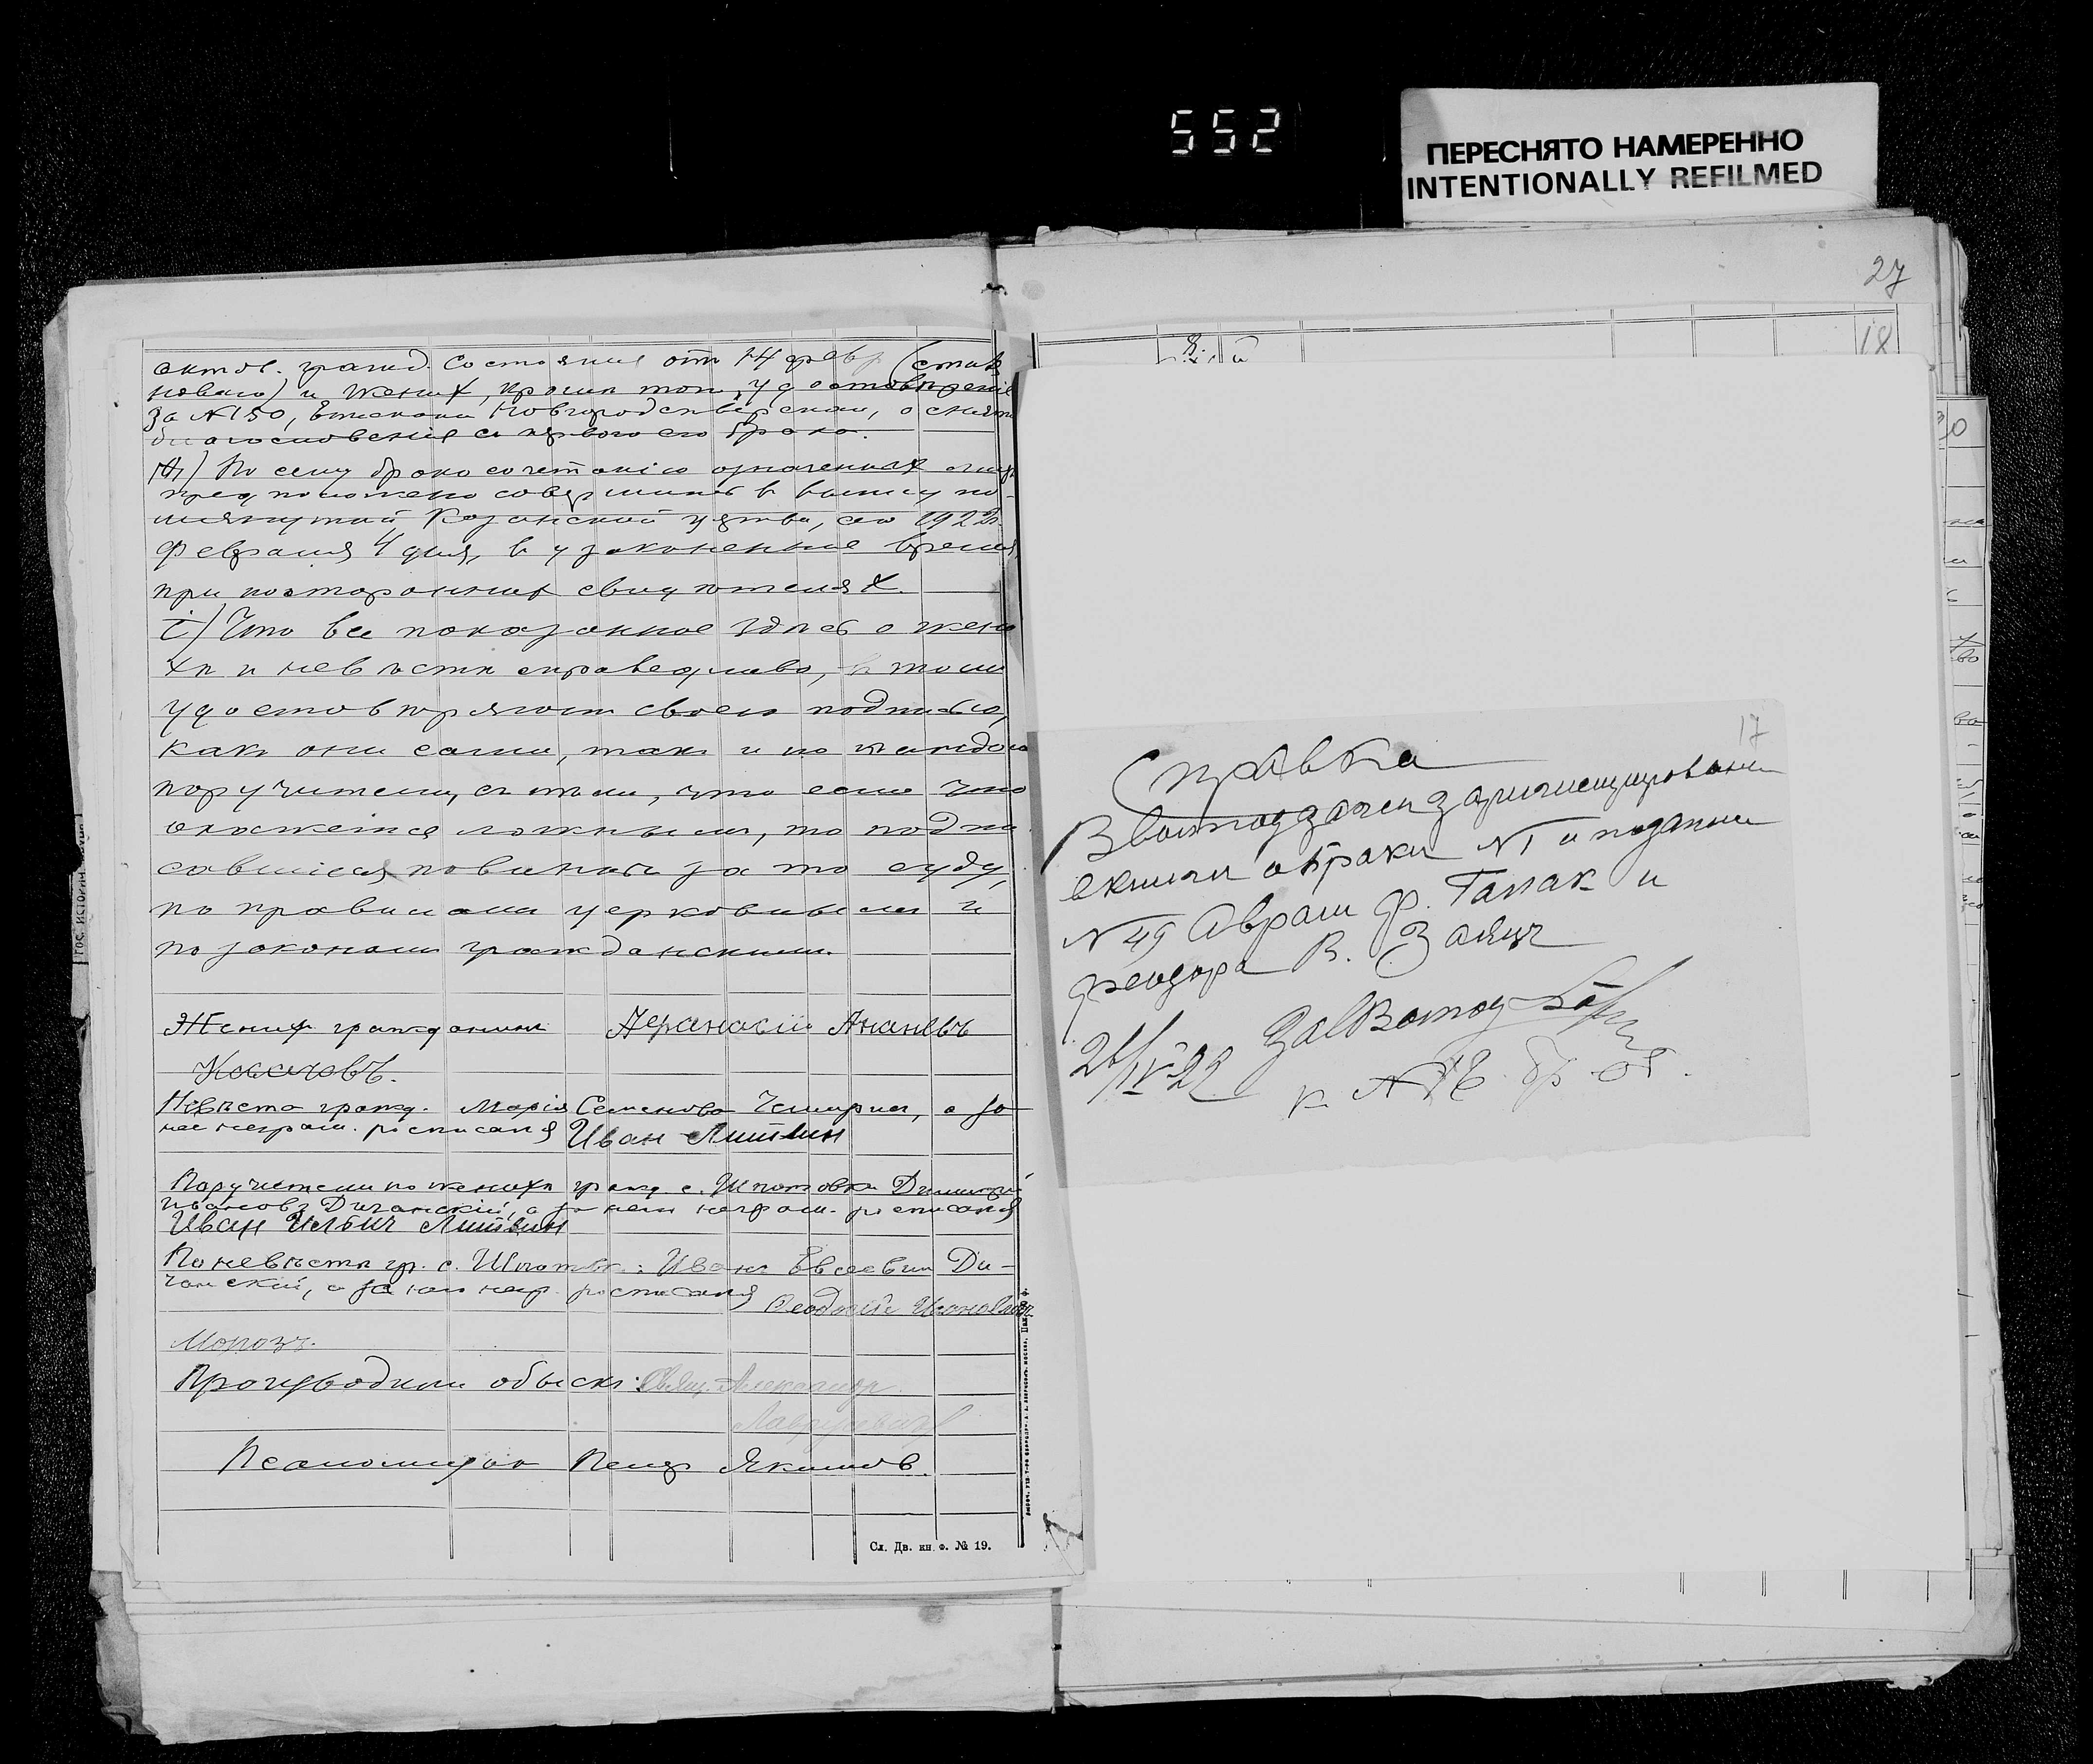 552
ПЕРЕСНЯТО НАМЕРЕННО
INTENTIONALLY REFILMED
27
18
актов. гражд. состоянія от 14 февр (стил
новаго) и жених, кроме того, удостоверенiе
за № 150, Епископа Новгородсеверскаго, о снятiи
благословенiя съ перваго его брака.
По сему бракосочетанію означенныхъ лицъ
предположено совершить в выше упо-
мянутой Казанской церкви, сего 1922 г.
февраля 4 дня, в узаконенное время,
при постороннихъ свидѣтеляхъ.
і) Что все показанное здѣсь о жени
хѣ и невѣстѣ справедливо, в томъ
удостовѣряютъ своею подписью,
какъ они сами, такъ и по каждомъ
поручители, съ тѣмъ, что если что
окажется ложнымъ, то подпи
савшіеся повинны за то суду,
по правиламъ церковнымъ и
по законамъ гражданскимъ.
Женихъ гражданинъ Афанасій Ананьевъ
Невѣста гражд. Марія Семенова а за
нее неграм. росписался Иван Литвин
Поручители по женихѣ гражд. с. Шпотовки Димитрій
Ивановъ Диганскій, а за него неграм. росписался
Иван Ильич Литвин
По невѣстѣ гр. с. Шпотовки: Иванъ Евсеевич Ди-
ганскій, а за него негр. росписался
Феодосій Иванович
Морозъ.
Производили обыскъ: Свящ. Александр
Псаломщикъ Петр Якимов.
Сл. Дв. кн. ф. № 19.
17
Справка
В волподзагсе зарегистрировани
в книги о браки № 1 и под
№ 49 Аврам Ф. Гапак и
Феодора В. Заяц
Зав Волпод
к № 16 бр об.